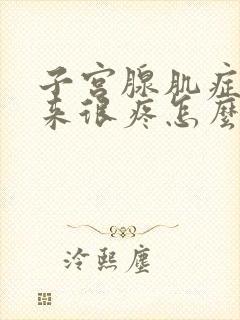 子宫腺肌症
来很疼怎麽
冷熙塵